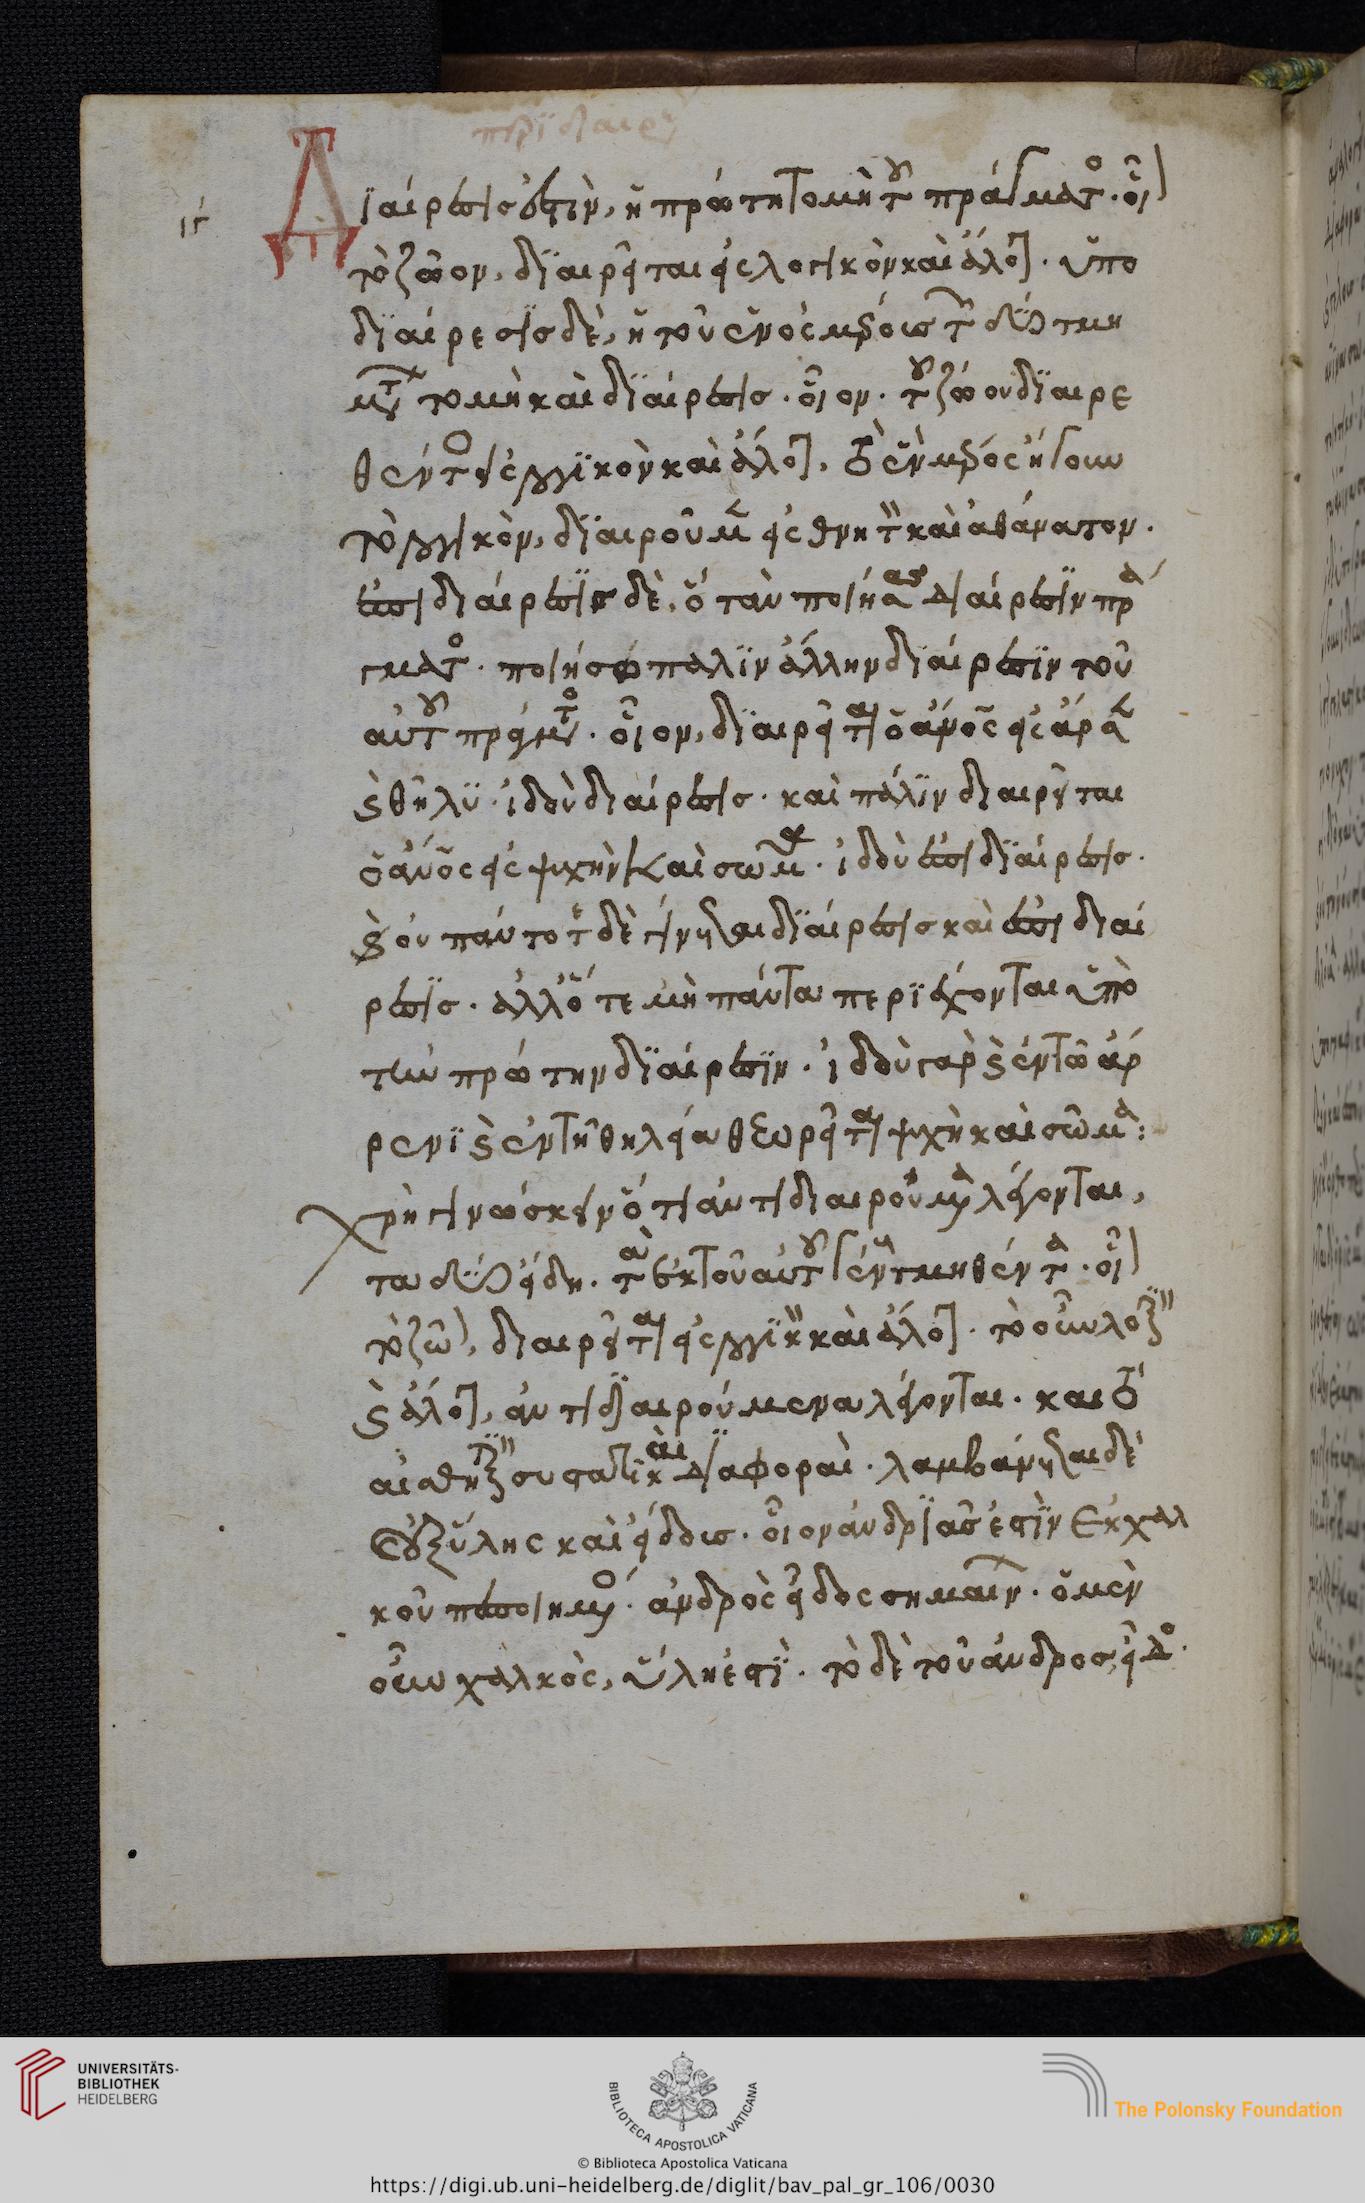 περὶ διαιρέ
ιγ
Διαίρεσίς ἐστιν, ἡ πρώτη τομὴ τοῦ πράγματος. οἷον
τὸ ζῶον, διαιρεῖται εἰς λογικὸν καὶ ἄλογον. ὑπο
διαίρεσις δὲ, ἡ τοῦ ἑνὸς μέρους τῶν διατμη
θέντων τομὴ καὶ διαίρεσις. οἷον. τοῦ ζώου διαιρε
θέντος εἰς λογικὸν καὶ ἄλογον, τὸ ἓν μέρος ἤγουν
τὸ λογικὸν, διαιροῦμεν εἰς θνητὸν καὶ ἀθάνατον.
ἐπιδιαίρεσις δὲ, ὅταν ποιήσας διαίρεσιν πρά
γματος. ποιήσω πάλιν ἄλλην διαίρεσιν τοῦ
αὐτοῦ πράγματος. οἷον, διαιρεῖται ὁ ἄνος εἰς ἄρρεν
καὶ θῆλυ. ἰδοὺ διαίρεσις. καὶ πάλιν διαιρεῖται
ὁ ἄνος εἰς ψυχὴν καὶ σῶμα. ἰδοὺ ἐπιδιαίρεσις.
καὶ οὐ πάντοτε δὲ γίνεται διαίρεσις καὶ ἐπιδιαί
ρεσις. ἀλλ' ὅτε μὴ πάντα περιέχονται ὑπὸ
τὴν πρώτην διαίρεσιν. ἰδοὺ γὰρ καὶ ἐν τῷ ἄρ
ρενι καὶ ἐν τῇ θηλείᾳ θεωρεῖται ψυχὴ καὶ σῶμα:
χρὴ γινώσκειν ὅτι ἀντιδιαιρούμενα λέγονται,
τὰ εἴδη. τὰ ἐκ τοῦ αὐτοῦ γένους τμηθέντα. οἷον
τὸ ζῶον, διαιρεῖται εἰς λογικὸν καὶ ἄλογον. τὸ οὖν λογικὸν
καὶ ἄλογον, ἀντιδιαιρούμενα λέγονται. καὶ
συστατικαὶ διαφοραὶ. λαμβάνεται δὲ
ἐξ ὕλης καὶ εἴδους. οἷον ἀνδριάς ἐστιν ἐκ χαλ
κοῦ πεποιημένος. ἀνδρὸς εἶδος σημαίνων. ὁ μὲν
οὖν χαλκὸς, ὕλη ἐστὶ. τὸ δὲ τοῦ ἀνδρὸς, εἶδος.
UNIVERSITÄTS-
BIBLIOTHEK
HEIDELBERG
BIBLIOTECA APOSTOLICA VATICANA
The Polonsky Foundation
© Biblioteca Apostolica Vaticana
https://digi.ub.uni-heidelberg.de/diglit/bav_pal_gr_106/0030